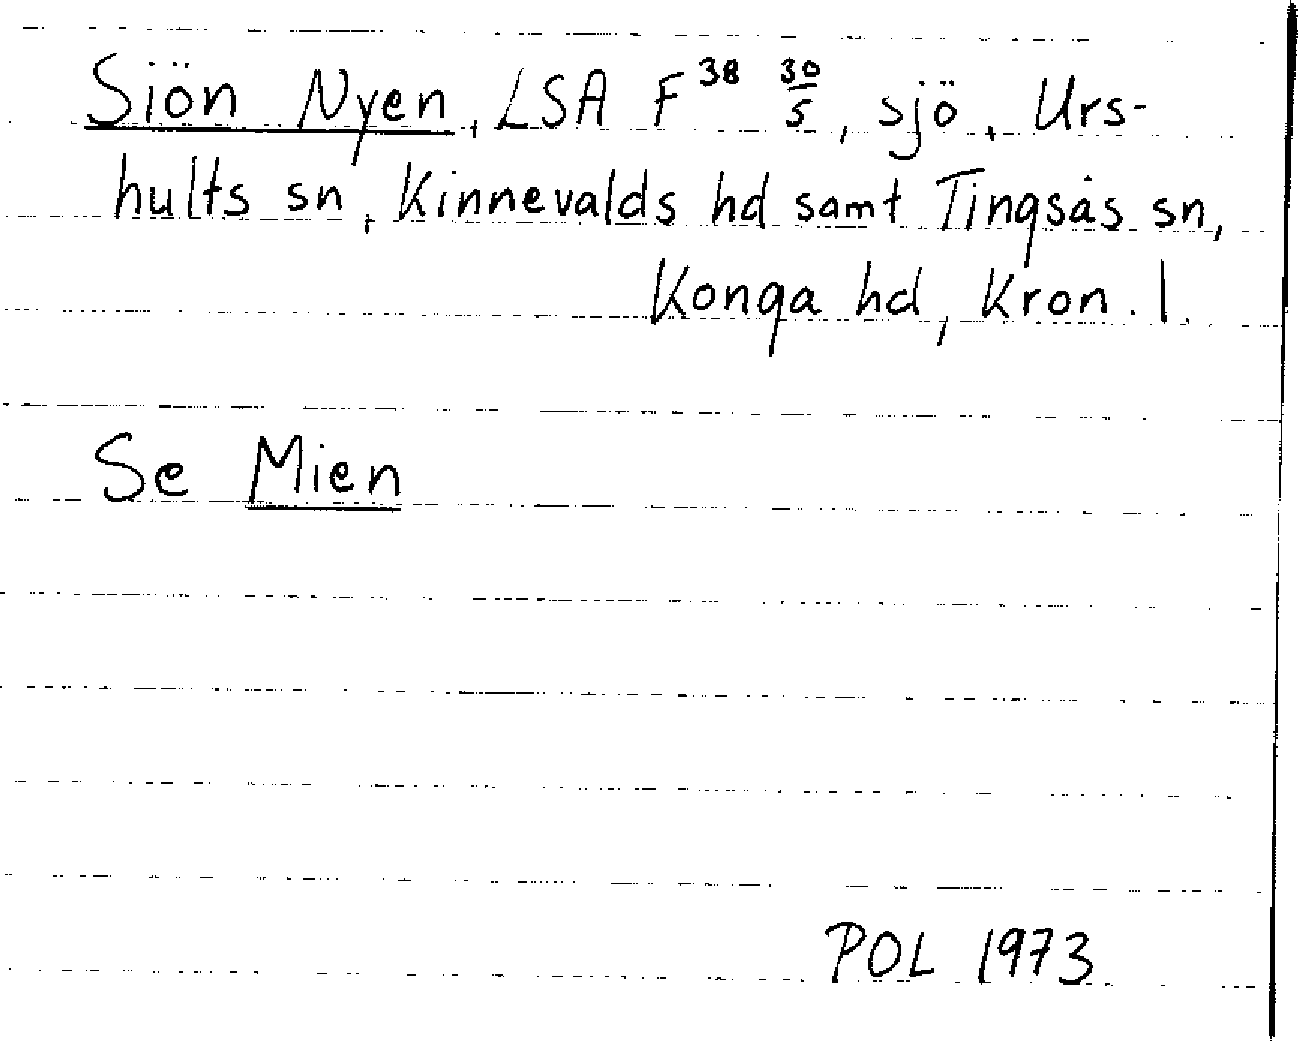 Siön Nyen, LSA F 38 30/5, sjö, Urs-
hults sn, Kinnevalds hd samt Tingsås sn,
Konga hd, Kron. l.
Se Mien
POL 1973